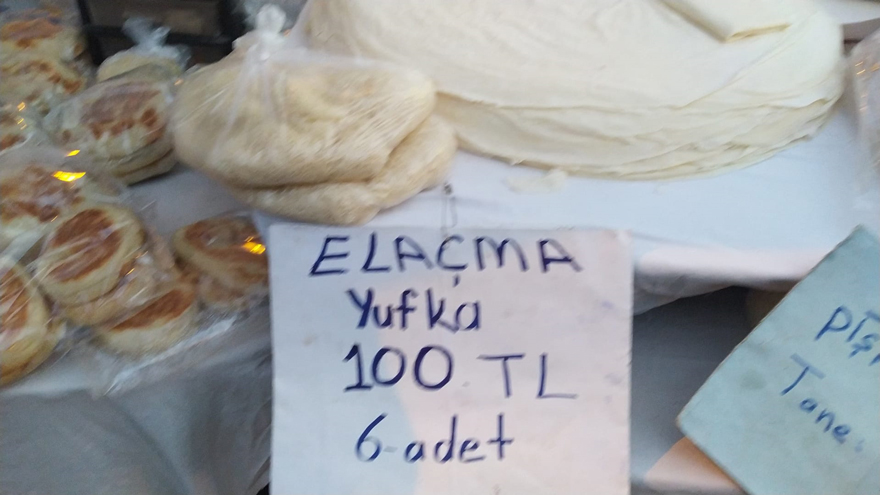 ELAÇMA
Yufka
100 TL
6-adet
Tane